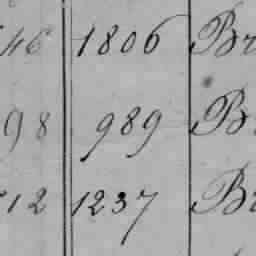 46 1806 Br
98 989 Br
712 1237 Br